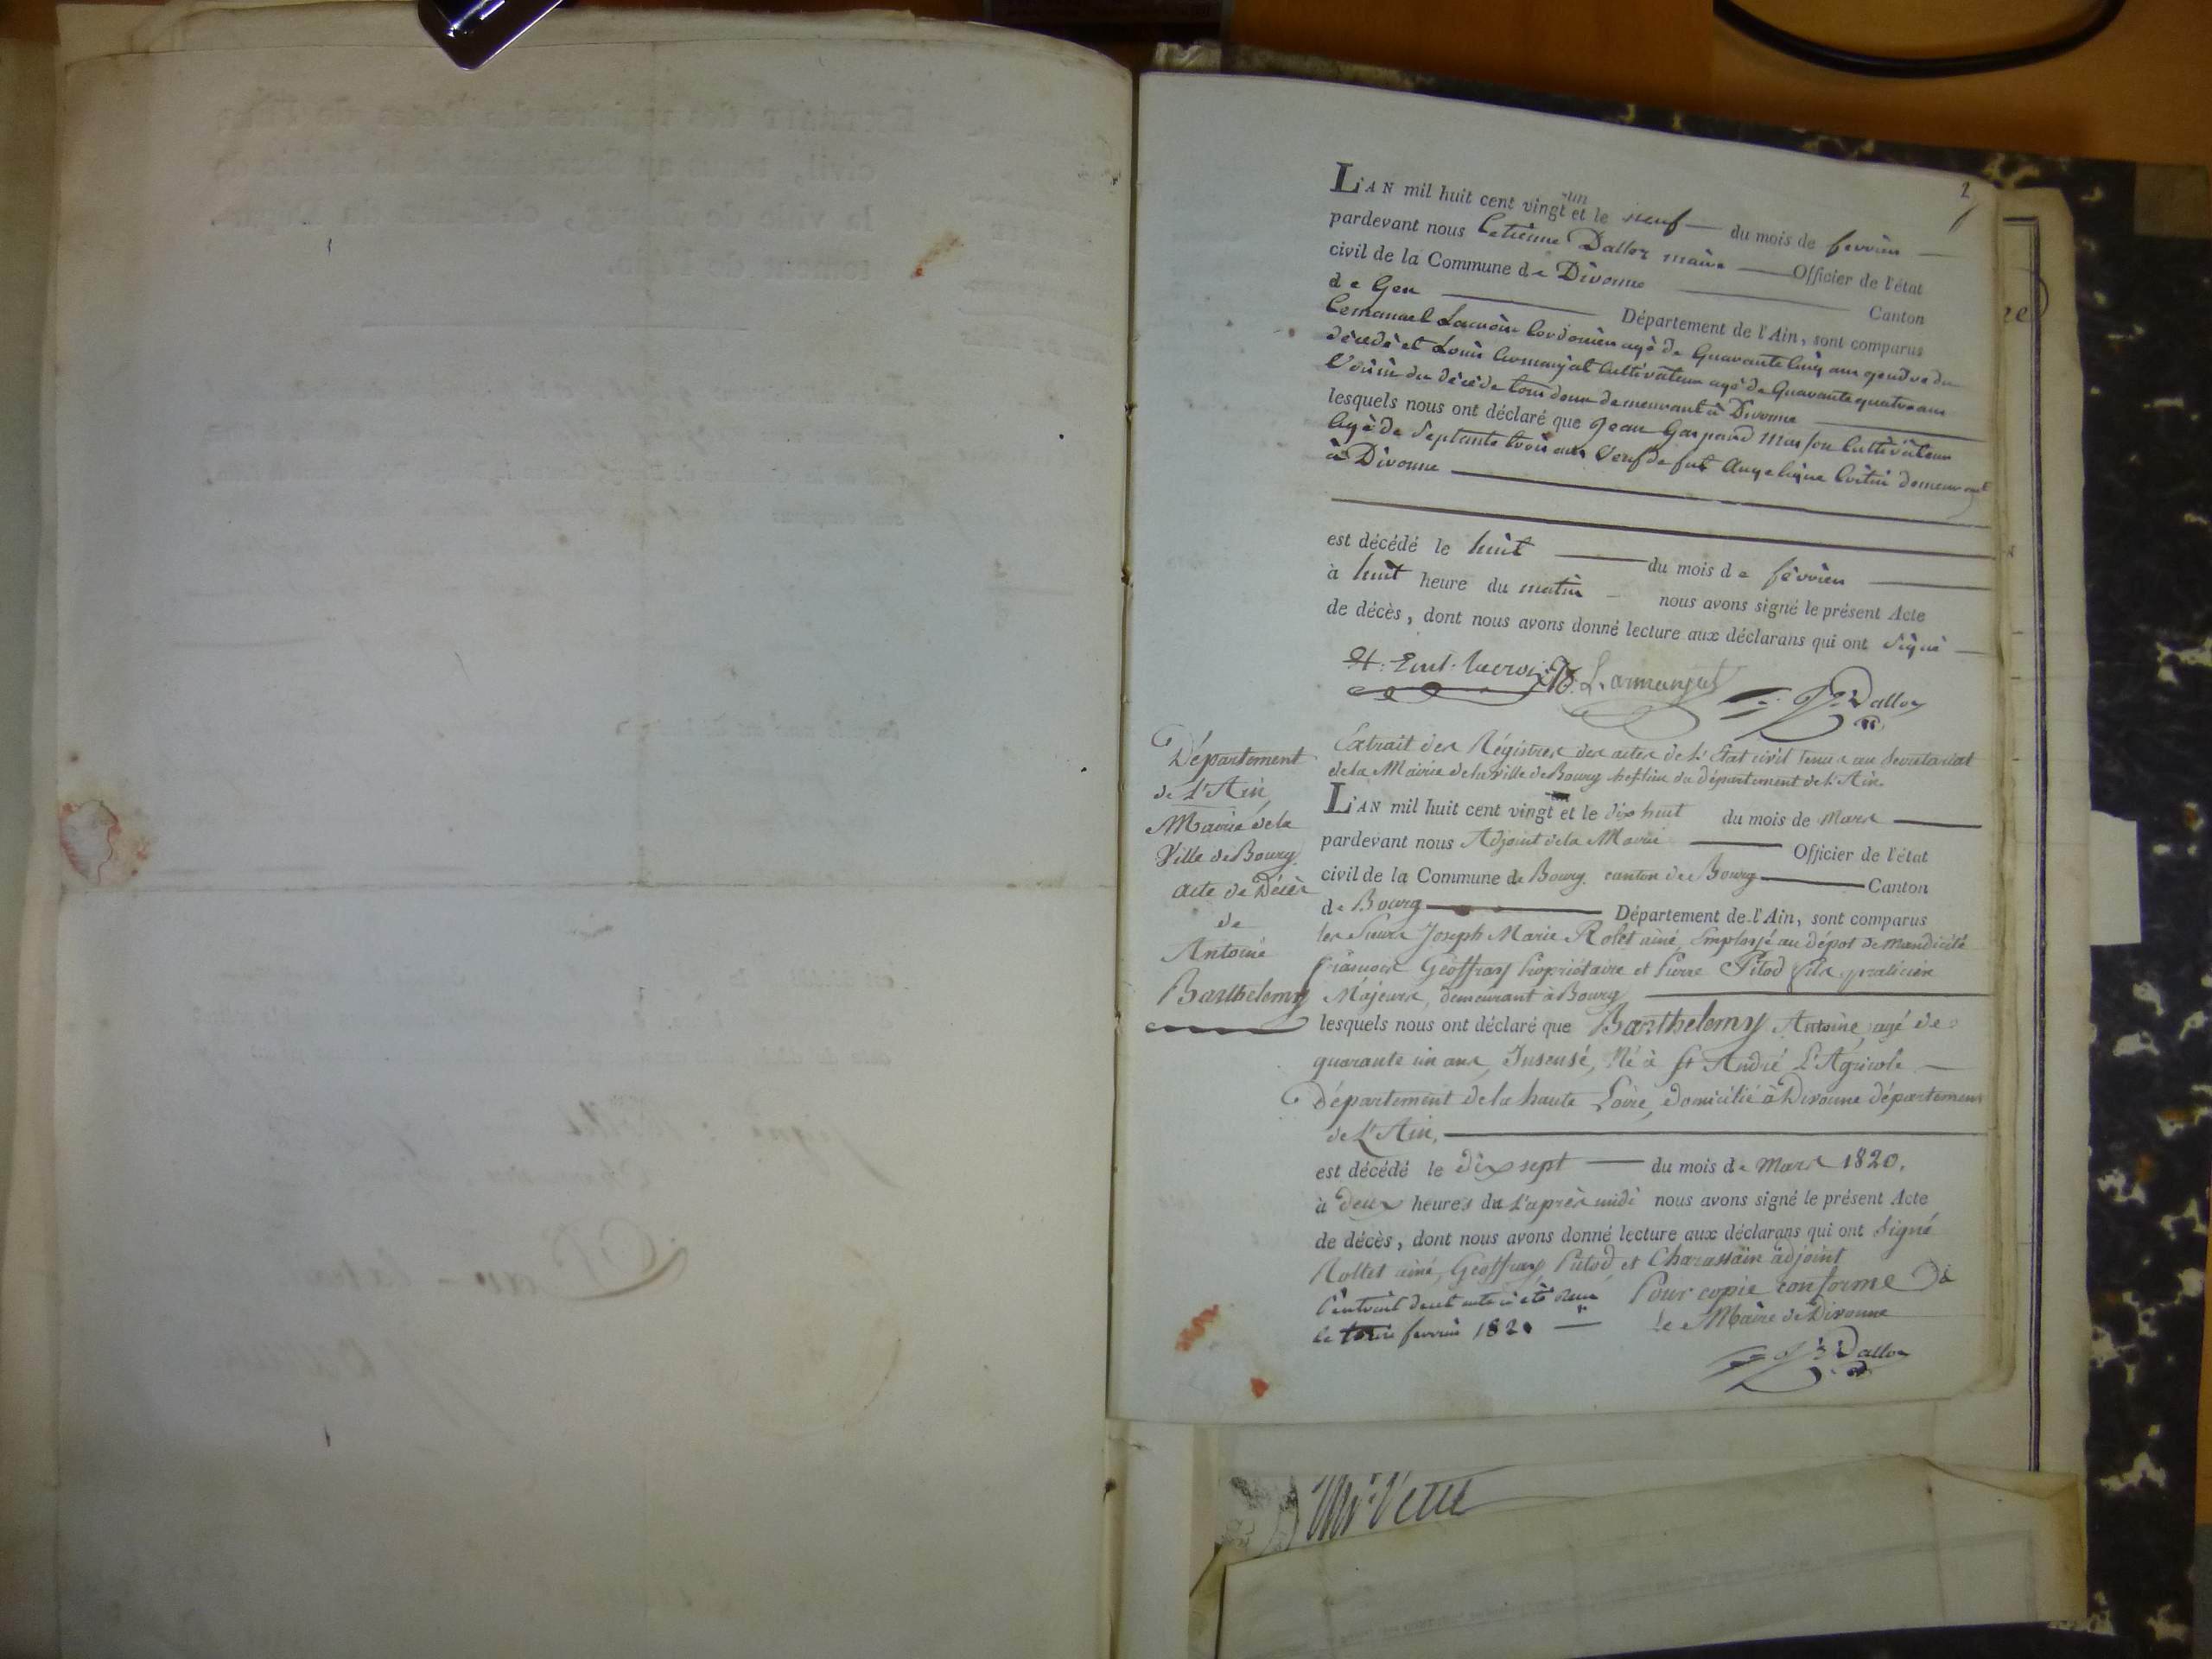 2
L'AN mil huit cent vingt-un et le neuf du mois de fevrier
pardevant nous Etienne Dalloz maire Officier de l'état
civil de la Commune de Divonne Canton
de Gex Département de l'Ain, sont comparus
Emanuel Lacroix Cordonier agé de Quarante Cinq ans gendre du
décedé et Louis Armanjat Cultivateur agé de Quarante quatre ans
Voisin du décédé tous deux demeurant à Divonne
lesquels nous ont déclaré que Jean Gaspard Masson Cultivateur
Agé de Septante trois ans Veuf de fut Angelique demeurant
à Divonne
est décédé le huit du mois de févrièr
à huit heure du matin nous avons signé le présent Acte
de décès, dont nous avons donné lecture aux déclarans qui ont Signé
Eml. Lacroix L. armanjat Dalloz
Département
de L'Ain
Mairie de la
Ville de Bourg
Acte de Décès
de
Antoine
Barthelemy
Extrait des Régistres des actes de L'Etat civil tenus au Secretariat
de la Mairie de la Ville de Bourg du département de L'Ain.
L'AN mil huit cent vingt et le dix huit du mois de Mars
pardevant nous Adjoint de la Mairie Officier de l'état
civil de la Commune de Bourg canton de Bourg Canton
de Bourg Département de l'Ain, sont comparus
les Sieurs Joseph Marie Rolet ainé, Employé au dépot de mandicité
francois Geoffray Propriétaire et Pierre Pitod fils praticien
Majeurs, demeurant à Bourg
lesquels nous ont déclaré que Barthelemy Antoine, agé de
quarante un ans, Insensé, Né à St André L'Agricole
Département de la haute Loire, domicilié à Divonne département
de L'Ain,
est décédé le dix sept du mois de Mars 1820.
à deux heures du L'après midi nous avons signé le présent Acte
de décès, dont nous avons donné lecture aux déclarans qui ont Signé
Rollet ainé, Geoffray Pitod et Charassain adjoint
L'extrait dudt acte a été Pour copie conforme
le fevrier 182 le Maire de Divonne
Dalloz